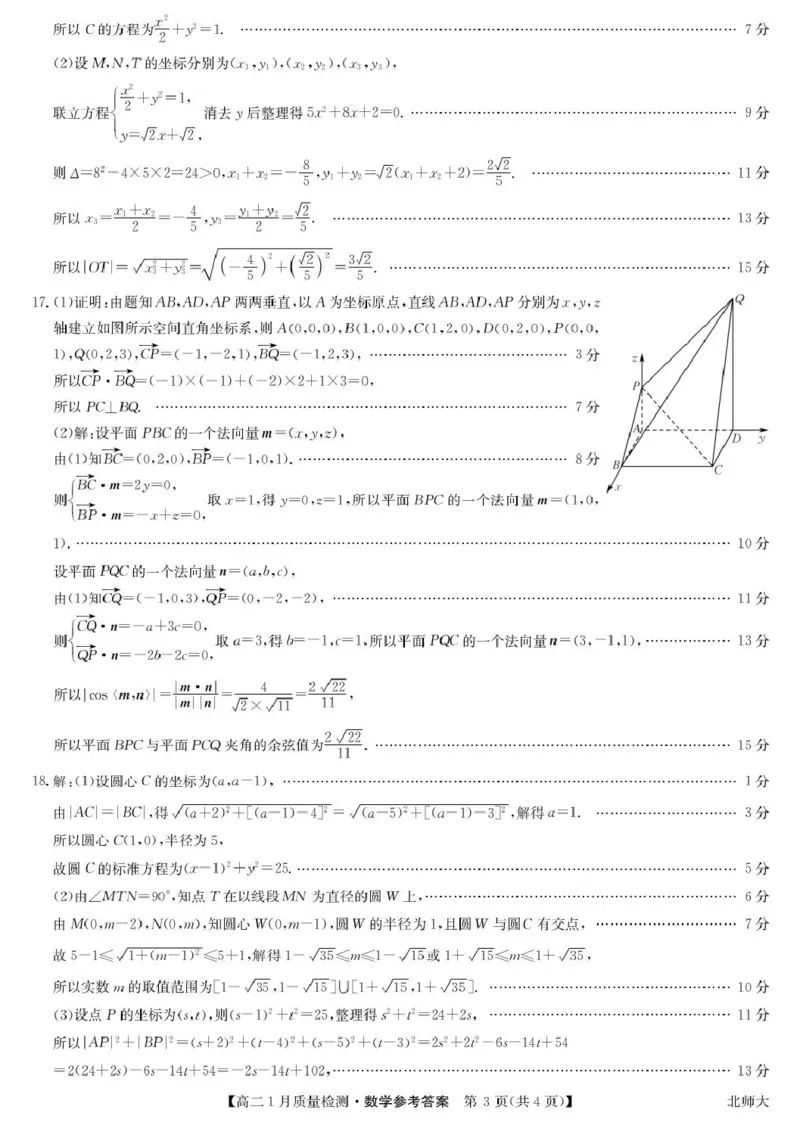 所以 C 的方程为 x²/2+y²=1. …… 7 分
(2)设 M,N,T 的坐标分别为(x₁,y₁),(x₂,y₂),(x₃,y₃),
联立方程{x²/2+y²=1, y=√2x+√2, 消去 y 后整理得 5x²+8x+2=0. …… 9 分
则 Δ=8²-4×5×2=24>0,x₁+x₂=-8/5,y₁+y₂=√2(x₁+x₂+2)=2√2/5. …… 11 分
所以 x₃=(x₁+x₂)/2=-4/5,y₃=(y₁+y₂)/2=√2/5. …… 13 分
所以|OT|=√(x₃²+y₃²)=√((-4/5)²+(√2/5)²)=3√2/5. …… 15 分
17.(1)证明:由题知 AB,AD,AP 两两垂直,以 A 为坐标原点,直线 AB,AD,AP 分别为 x,y,z
轴建立如图所示空间直角坐标系,则 A(0,0,0),B(1,0,0),C(1,2,0),D(0,2,0),P(0,0,
1),Q(0,2,3),CP→=(-1,-2,1),BQ→=(-1,2,3), …… 3 分
所以CP→·BQ→=(-1)×(-1)+(-2)×2+1×3=0,
所以 PC⊥BQ. …… 7 分
(2)解:设平面 PBC 的一个法向量 m=(x,y,z),
由(1)知BC→=(0,2,0),BP→=(-1,0,1). …… 8 分
则{BC→·m=2y=0, BP→·m=-x+z=0, 取 x=1,得 y=0,z=1,所以平面 BPC 的一个法向量 m=(1,0,
1). …… 10 分
设平面 PQC 的一个法向量 n=(a,b,c),
由(1)知CQ→=(-1,0,3),QP→=(0,-2,-2), …… 11 分
则{CQ→·n=-a+3c=0, QP→·n=-2b-2c=0, 取 a=3,得 b=-1,c=1,所以平面 PQC 的一个法向量 n=(3,-1,1), …… 13 分
所以|cos〈m,n〉|=|m·n|/(|m||n|)=4/(√2×√11)=2√22/11,
所以平面 BPC 与平面 PCQ 夹角的余弦值为 2√22/11. …… 15 分
Q
z
P
A
D
y
B
C
x
18.解:(1)设圆心 C 的坐标为(a,a-1), …… 1 分
由|AC|=|BC|,得 √((a+2)²+[(a-1)-4]²)=√((a-5)²+[(a-1)-3]²),解得 a=1. …… 3 分
所以圆心 C(1,0),半径为 5,
故圆 C 的标准方程为(x-1)²+y²=25. …… 5 分
(2)由∠MTN=90°,知点 T 在以线段 MN 为直径的圆 W 上, …… 6 分
由 M(0,m-2),N(0,m),知圆心 W(0,m-1),圆 W 的半径为 1,且圆 W 与圆 C 有交点, …… 7 分
故 5-1≤√(1+(m-1)²)≤5+1,解得 1-√35≤m≤1-√15或 1+√15≤m≤1+√35,
所以实数 m 的取值范围为[1-√35,1-√15]∪[1+√15,1+√35]. …… 10 分
(3)设点 P 的坐标为(s,t),则(s-1)²+t²=25,整理得 s²+t²=24+2s, …… 11 分
所以|AP|²+|BP|²=(s+2)²+(t-4)²+(s-5)²+(t-3)²=2s²+2t²-6s-14t+54
=2(24+2s)-6s-14t+54=-2s-14t+102, …… 13 分
【高二 1 月质量检测·数学参考答案 第 3 页(共 4 页)】 北师大